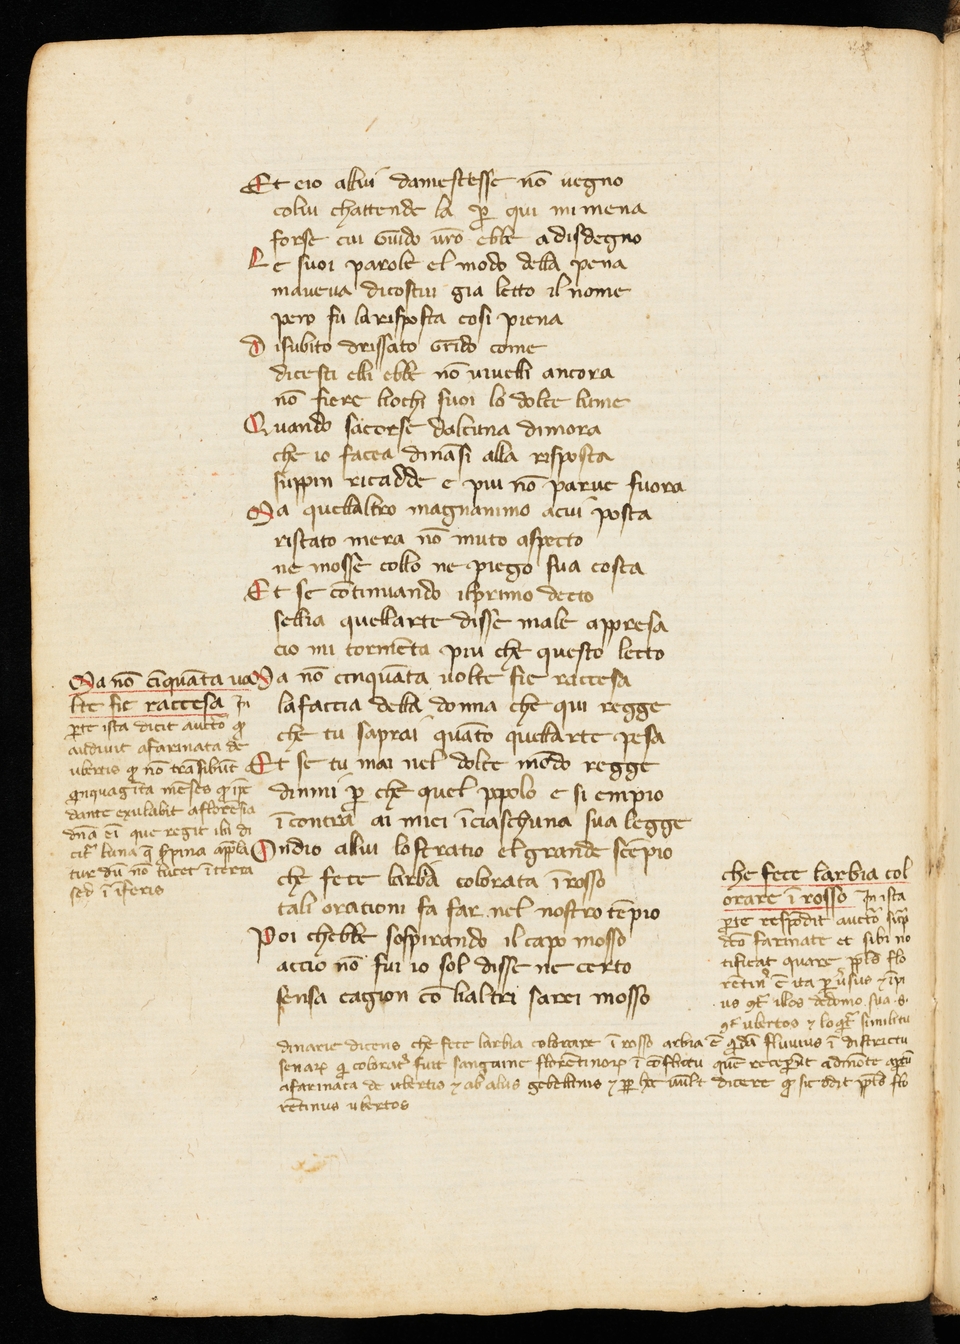 Et eio allui damestesse nō uegno
colui chattende la ꝑ qui mi mena
forse cui Guido urō ebbe adisdegno
Le suoi parole el modo della pena
maueua dicostui gia letto il nome
pero fu larisposta cosi piena
Disubito drissato Grido come
dicesti elli ebbe nō uiuelli ancora
nō fiere llochi suoi lo dolce lume
Quando saccorse dalcuna dimora
che io facea dināsi alla risposta
suppin ricadde e piu nō parue fuora
Ma quellaltro magnanimo acui posta
ristato mera nō muto aspecto
ne mosse collo ne piego sua costa
Et se cōtinuando ilprimo decto
sellia quellarte disse male appresa
cio mi tormēta piu che questo letto
Ma nō cinquāta uolte fie raccesa
lafaccia della donna che qui regge
che tu saprai quāto quellarte pesa
Et se tu mai nel dolce mōdo regge
dimmi ꝑ che quel ppolo e si empio
īcontra ai miei īciaschuna sua legge
Ondio allui lostratio elgrande scēpio
che fece larbia colorata ī rosso
tali orationi fa far nel nostro tēpio
Poi chebbe sospirando il capo mosso
accio nō fui io sol disse ne certo
sensa cagion cō llaltri sarei mosso
Ma nō cīquāta uo
lte fie raccesa In
ꝑte ista dicit auctor ꝙ
audiuit afarinata de
ubertis ꝙ nō trāsibūt
quinquagīta mēses ꝙ ip̄e
dante exulabit aflorēsia
dn̄a eī que regit ibi di
citr luna q̄ ꝓpina appella
tur dū nō lucet ī terra
sed ī īferis
che fece larbia col
orare ī rosso In ista
ꝑte respōdit auctor sup̄
dcō farinate et sibi no
tificat quare ppl̄s flo
rētinꝰ ē ita ꝑuersus
ubertos
dinarie dicens che fece larbia colorare ī rosso arbia ē quidā fluuius ī districtu
senarꝝ qui coloratꝰ fuit sanguine florētinorꝝ ī cōflictu quē receperūt admōte apertū
afarinata de ubertis ⁊ ab aliis gebellinis ⁊ dicere ꝙ sic odit ppl̄s flo
rētinus ubertos